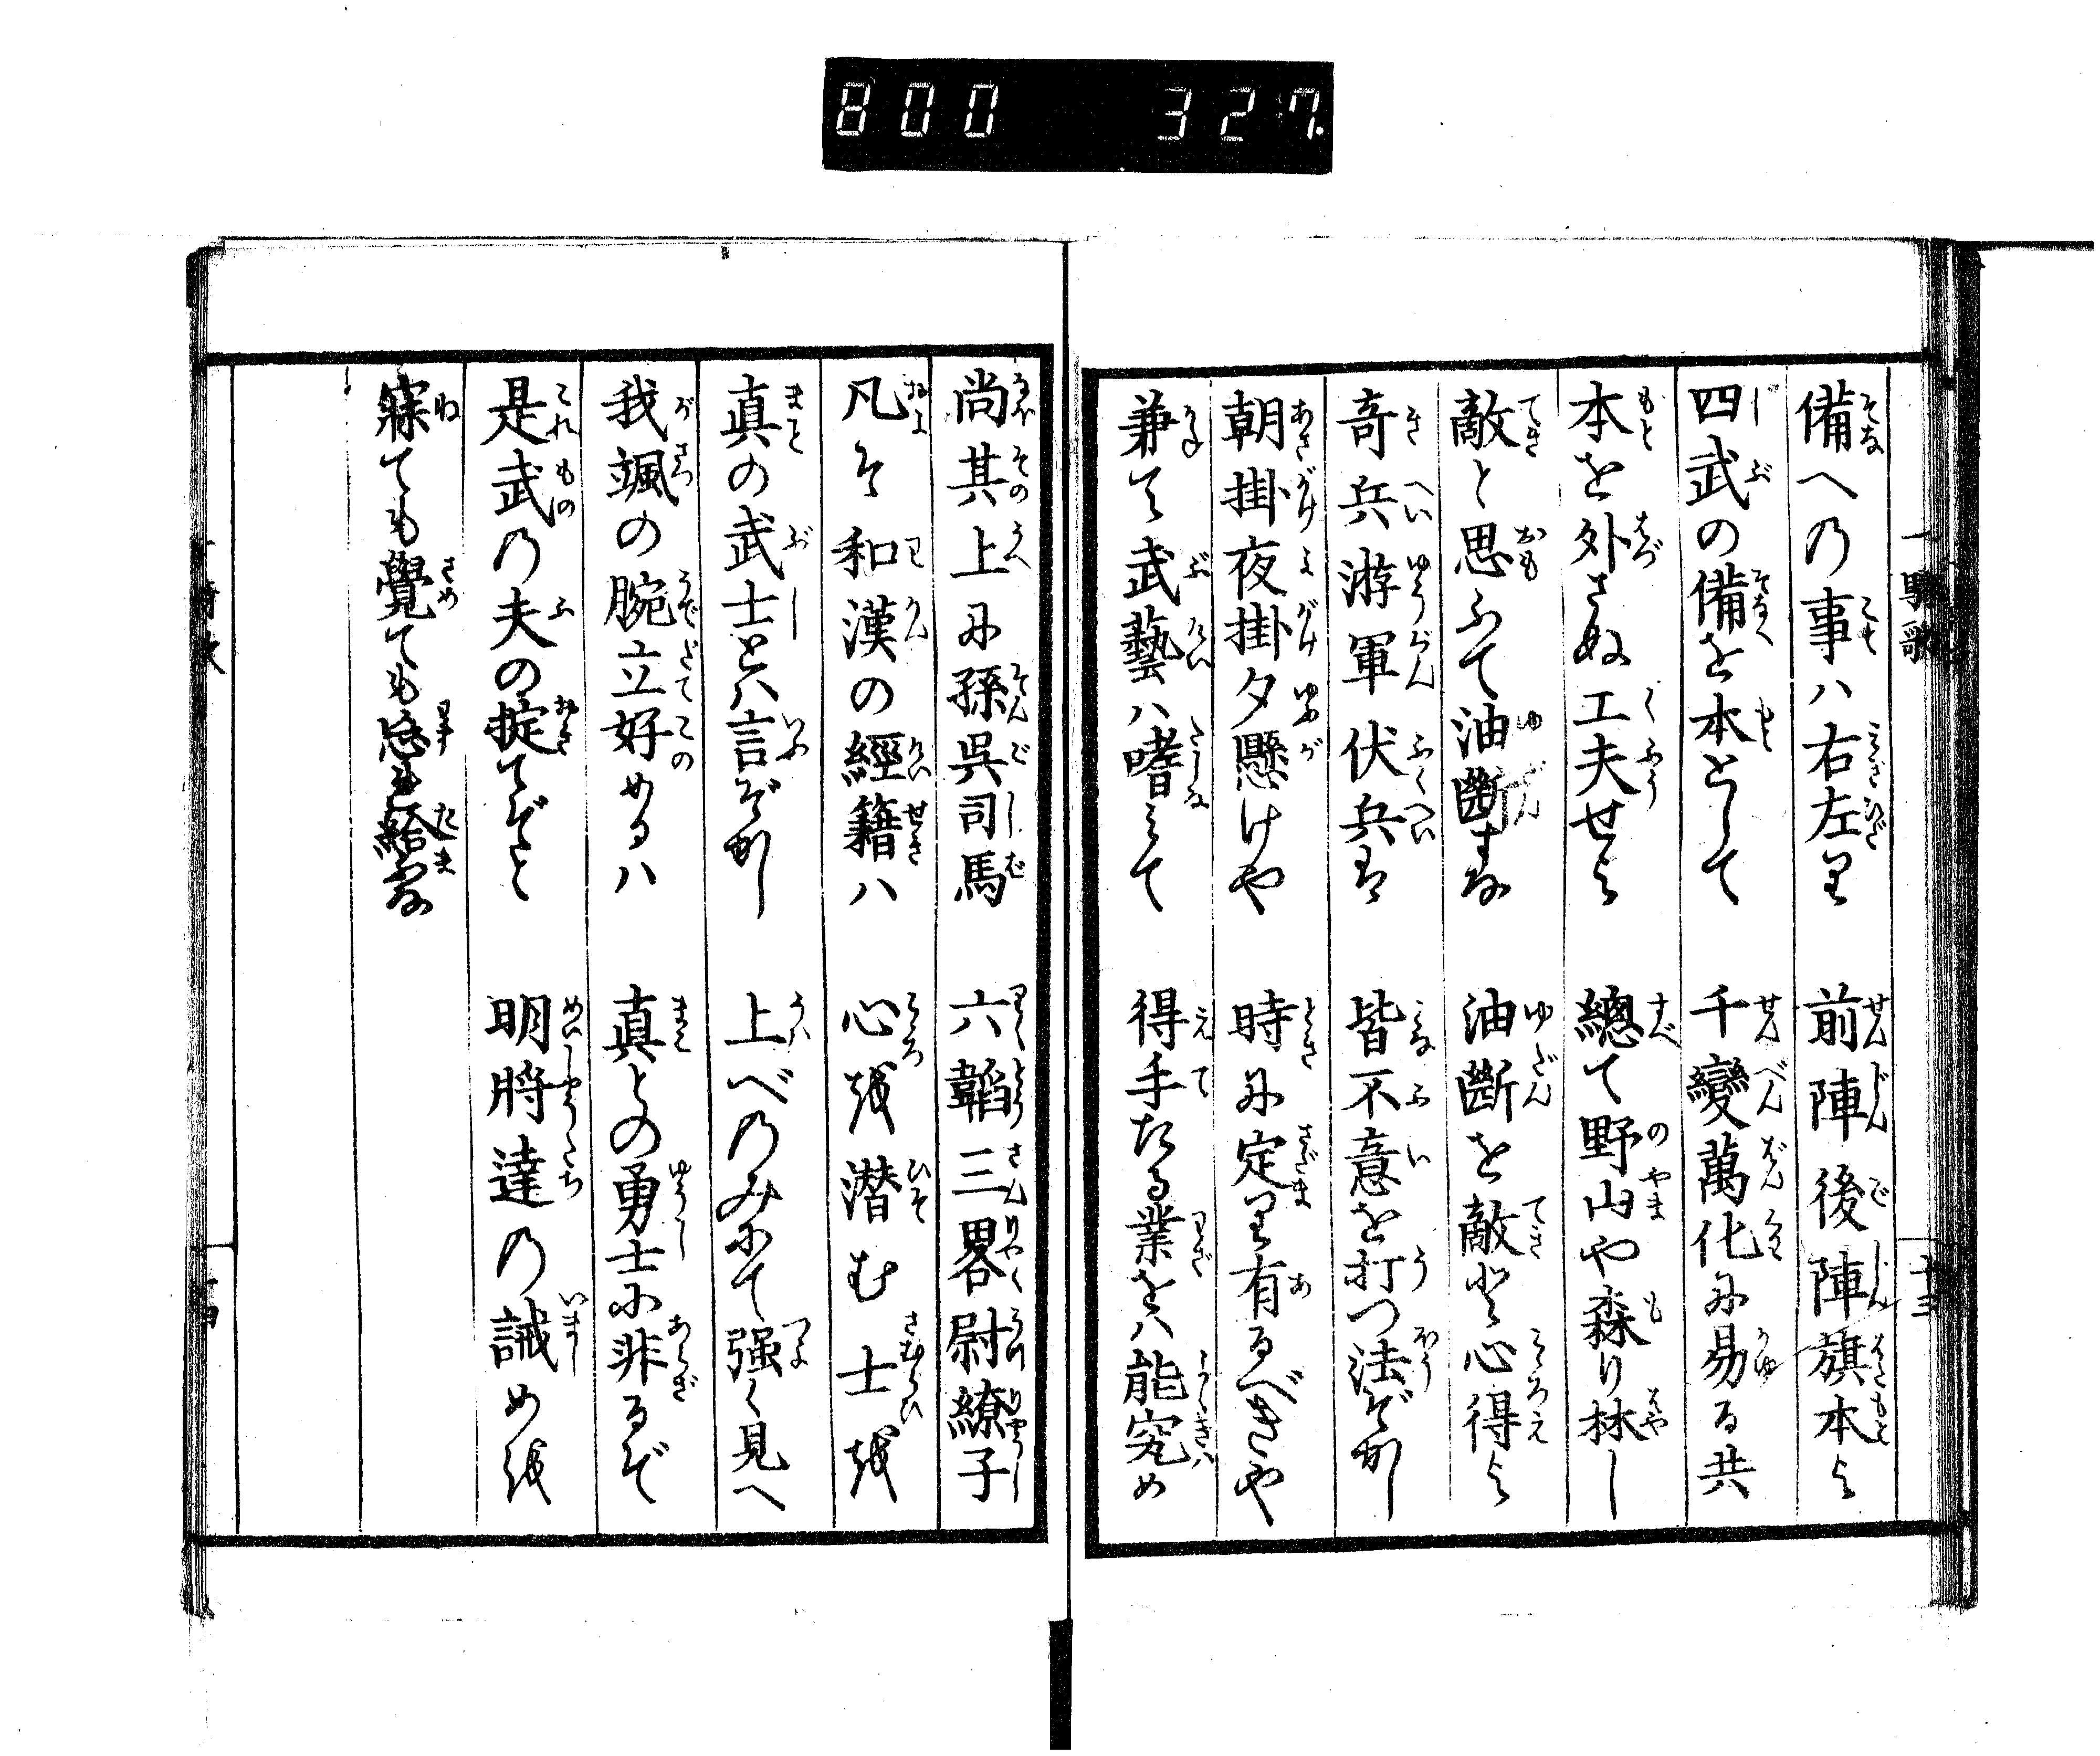 800 327.
一騎歌
備への事ハ右左り 前陣後陣旗本よ
四武の備を本として 千變萬化に易る共
本を外さぬ工夫せよ 總て野山や森り林し
敵と思ふて油斷すな 油斷を敵と心得よ
奇兵游軍伏兵は 皆不意を打つ法ぞかし
朝掛夜掛夕懸けや 時に定り有るべきや
兼て武藝ハ嗜みて 得手たる業をハ能究め
十三
尚其上に孫呉司馬 六韜三畧尉繚子
凡そ和漢の經籍ハ 心を潜む士を
真の武士とハ言ぞかし 上べのみにて强く見へ
我颯の腕立好めるハ 真との勇士に非るぞ
是武の夫の掟てぞと 明将達の誡め を
寐ても覺ても忘れ給ふな